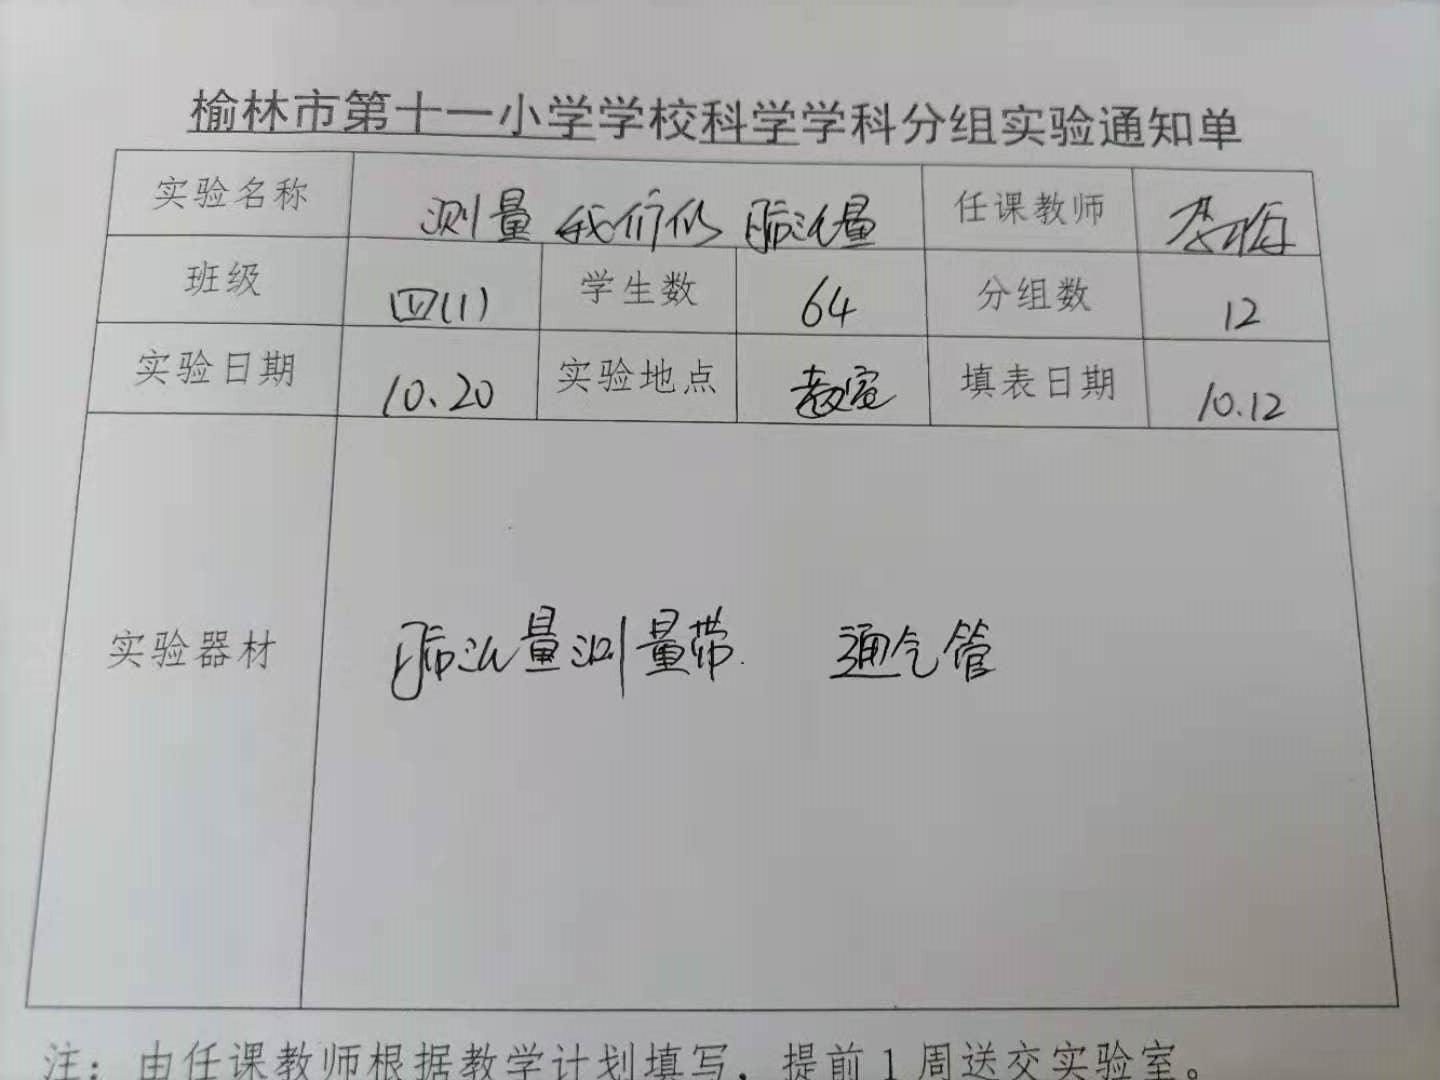 榆林市第十一小学学校科学学科分组实验通知单
实验名称 测量我们的肺活量 任课教师
班级 四(1) 学生数 64 分组数 12
实验日期 10.20 实验地点 教室 填表日期 10.12
实验器材 肺活量测量带. 通气管
注：由任课教师根据教学计划填写，提前1周送交实验室。